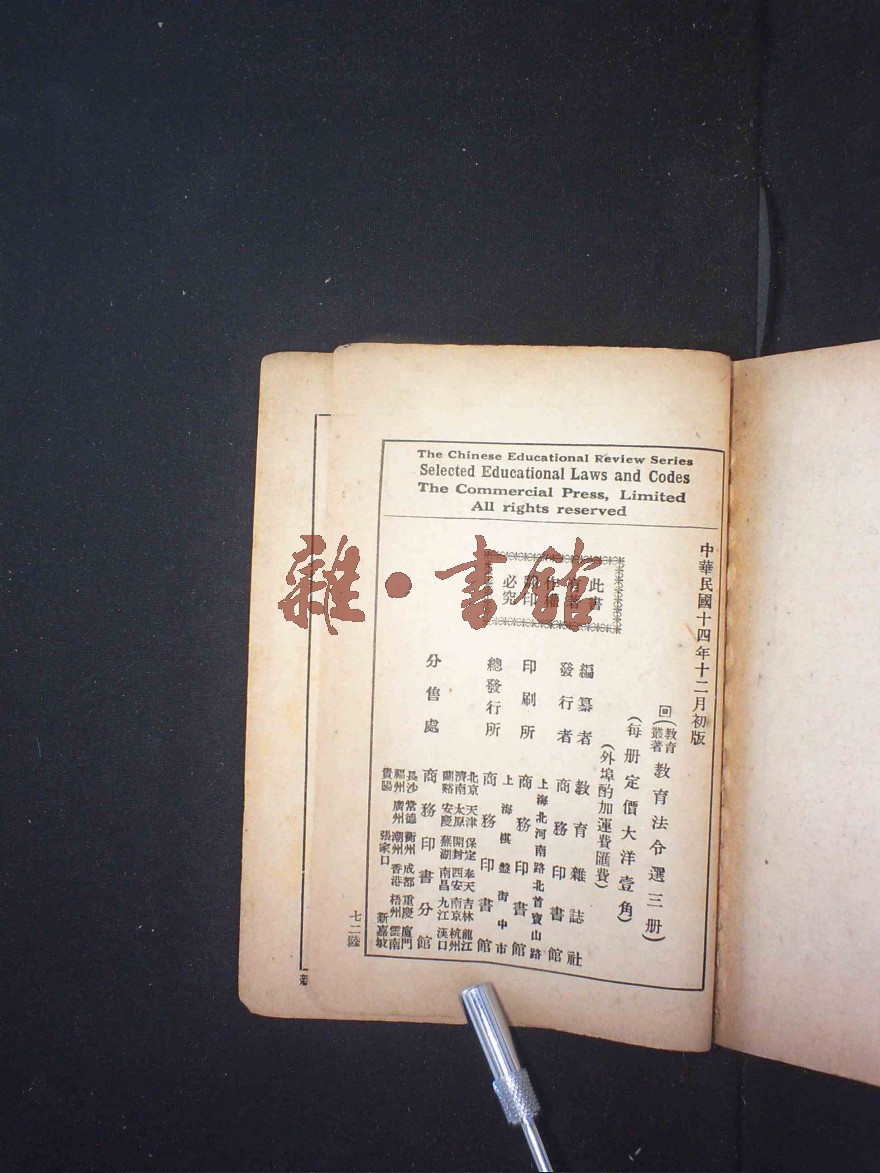 The Chinese Educational Review Series
Selected Educational Laws and Codes
The Commercial Press, Limited
All rights reserved
中華民國十四年十二月初版
教育
叢著
教育法令選三册
(每册定價大洋壹角)
(外埠酌加運費匯費)
此書
有著
作權
翻印
必究
編纂者 教育雜誌社
發行者 商務印書館
上海北河南路北首寶山路
印刷所 商務印書館
上海棋盤街中市
總發行所 商務印書館
分售處 商務印書分館
北京 天津 保定 奉天 吉林 龍江
濟南 太原 開封 西安 南京 杭州
蘭谿 安慶 蕪湖 南昌 九江 漢口
長沙 常德 衡州 成都 重慶 廈門
福州 廣州 潮州 香港 梧州 雲南
貴陽 張家口 新嘉坡
七二陸
雜·書館